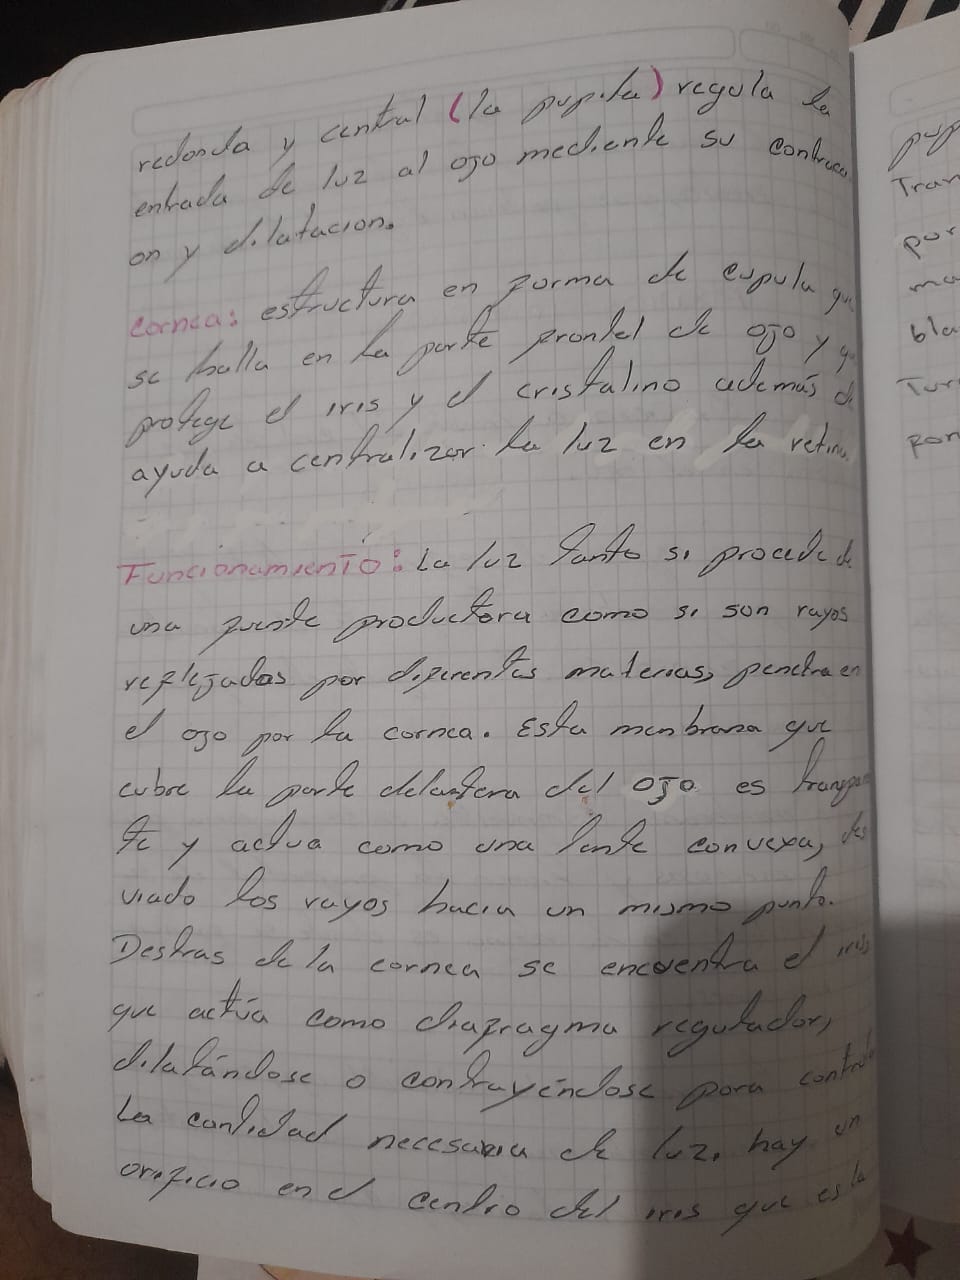 redonda y central (la pupila) regula la
entrada de luz al ojo mediente su contracci
on y dilatacion.
cornea: estructura en forma de cupula que
se halla en la parte frontel de ojo y que
protege el iris y el cristalino además de
ayuda a centralizar la luz en la retina.
Funcionamiento: La luz tanto si procede de
una fuente productora como si son rayos
reflejadas por diferentes materias, penetra en
el ojo por la cornea. Esta menbrana que
cubre la parte delantera del ojo es transparen
te y actua como una lente convexa, des
viado los rayos hacia un mismo punto.
Destras de la cornea se encuentra el iris
que actúa como diafragma regulador,
dilatándose o contrayéndose para controla
La cantidad necesaria de luz, hay un
orificio en el centro del iris que es la
pup
Tran
por
ma
bla
Tur
For